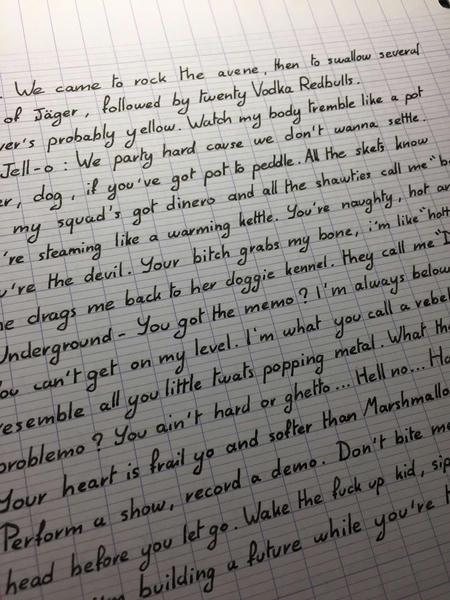 . We came to rock the avene, then to swallow several
of Jäger, followed by twenty Vodka Redbulls.
ver's probably yellow. Watch my body tremble like a pot
Jell-o : We party hard cause we don't wanna settle.
er, dog, if you've got pot to peddle. All the skets know
my squad's got dinero and all the shawties call me "b
're steaming like a warming kettle. You're naughty, hot an
u're the devil. Your bitch grabs my bone, i'm like "hott
he drags me back to her doggie kennel. they call me "D
Underground - You got the memo ? I'm always below
ou can't get on my level. I'm what you call a rebel
resemble all you little twats popping metal. What the
problemo ? You ain't hard or ghetto ... Hell no ... Ha
Your heart is frail yo and softer than Marshmallo
Perform a show, record a demo. Don't bite me
head before you let go. Wake the fuck up kid, sip
building a future while you're t